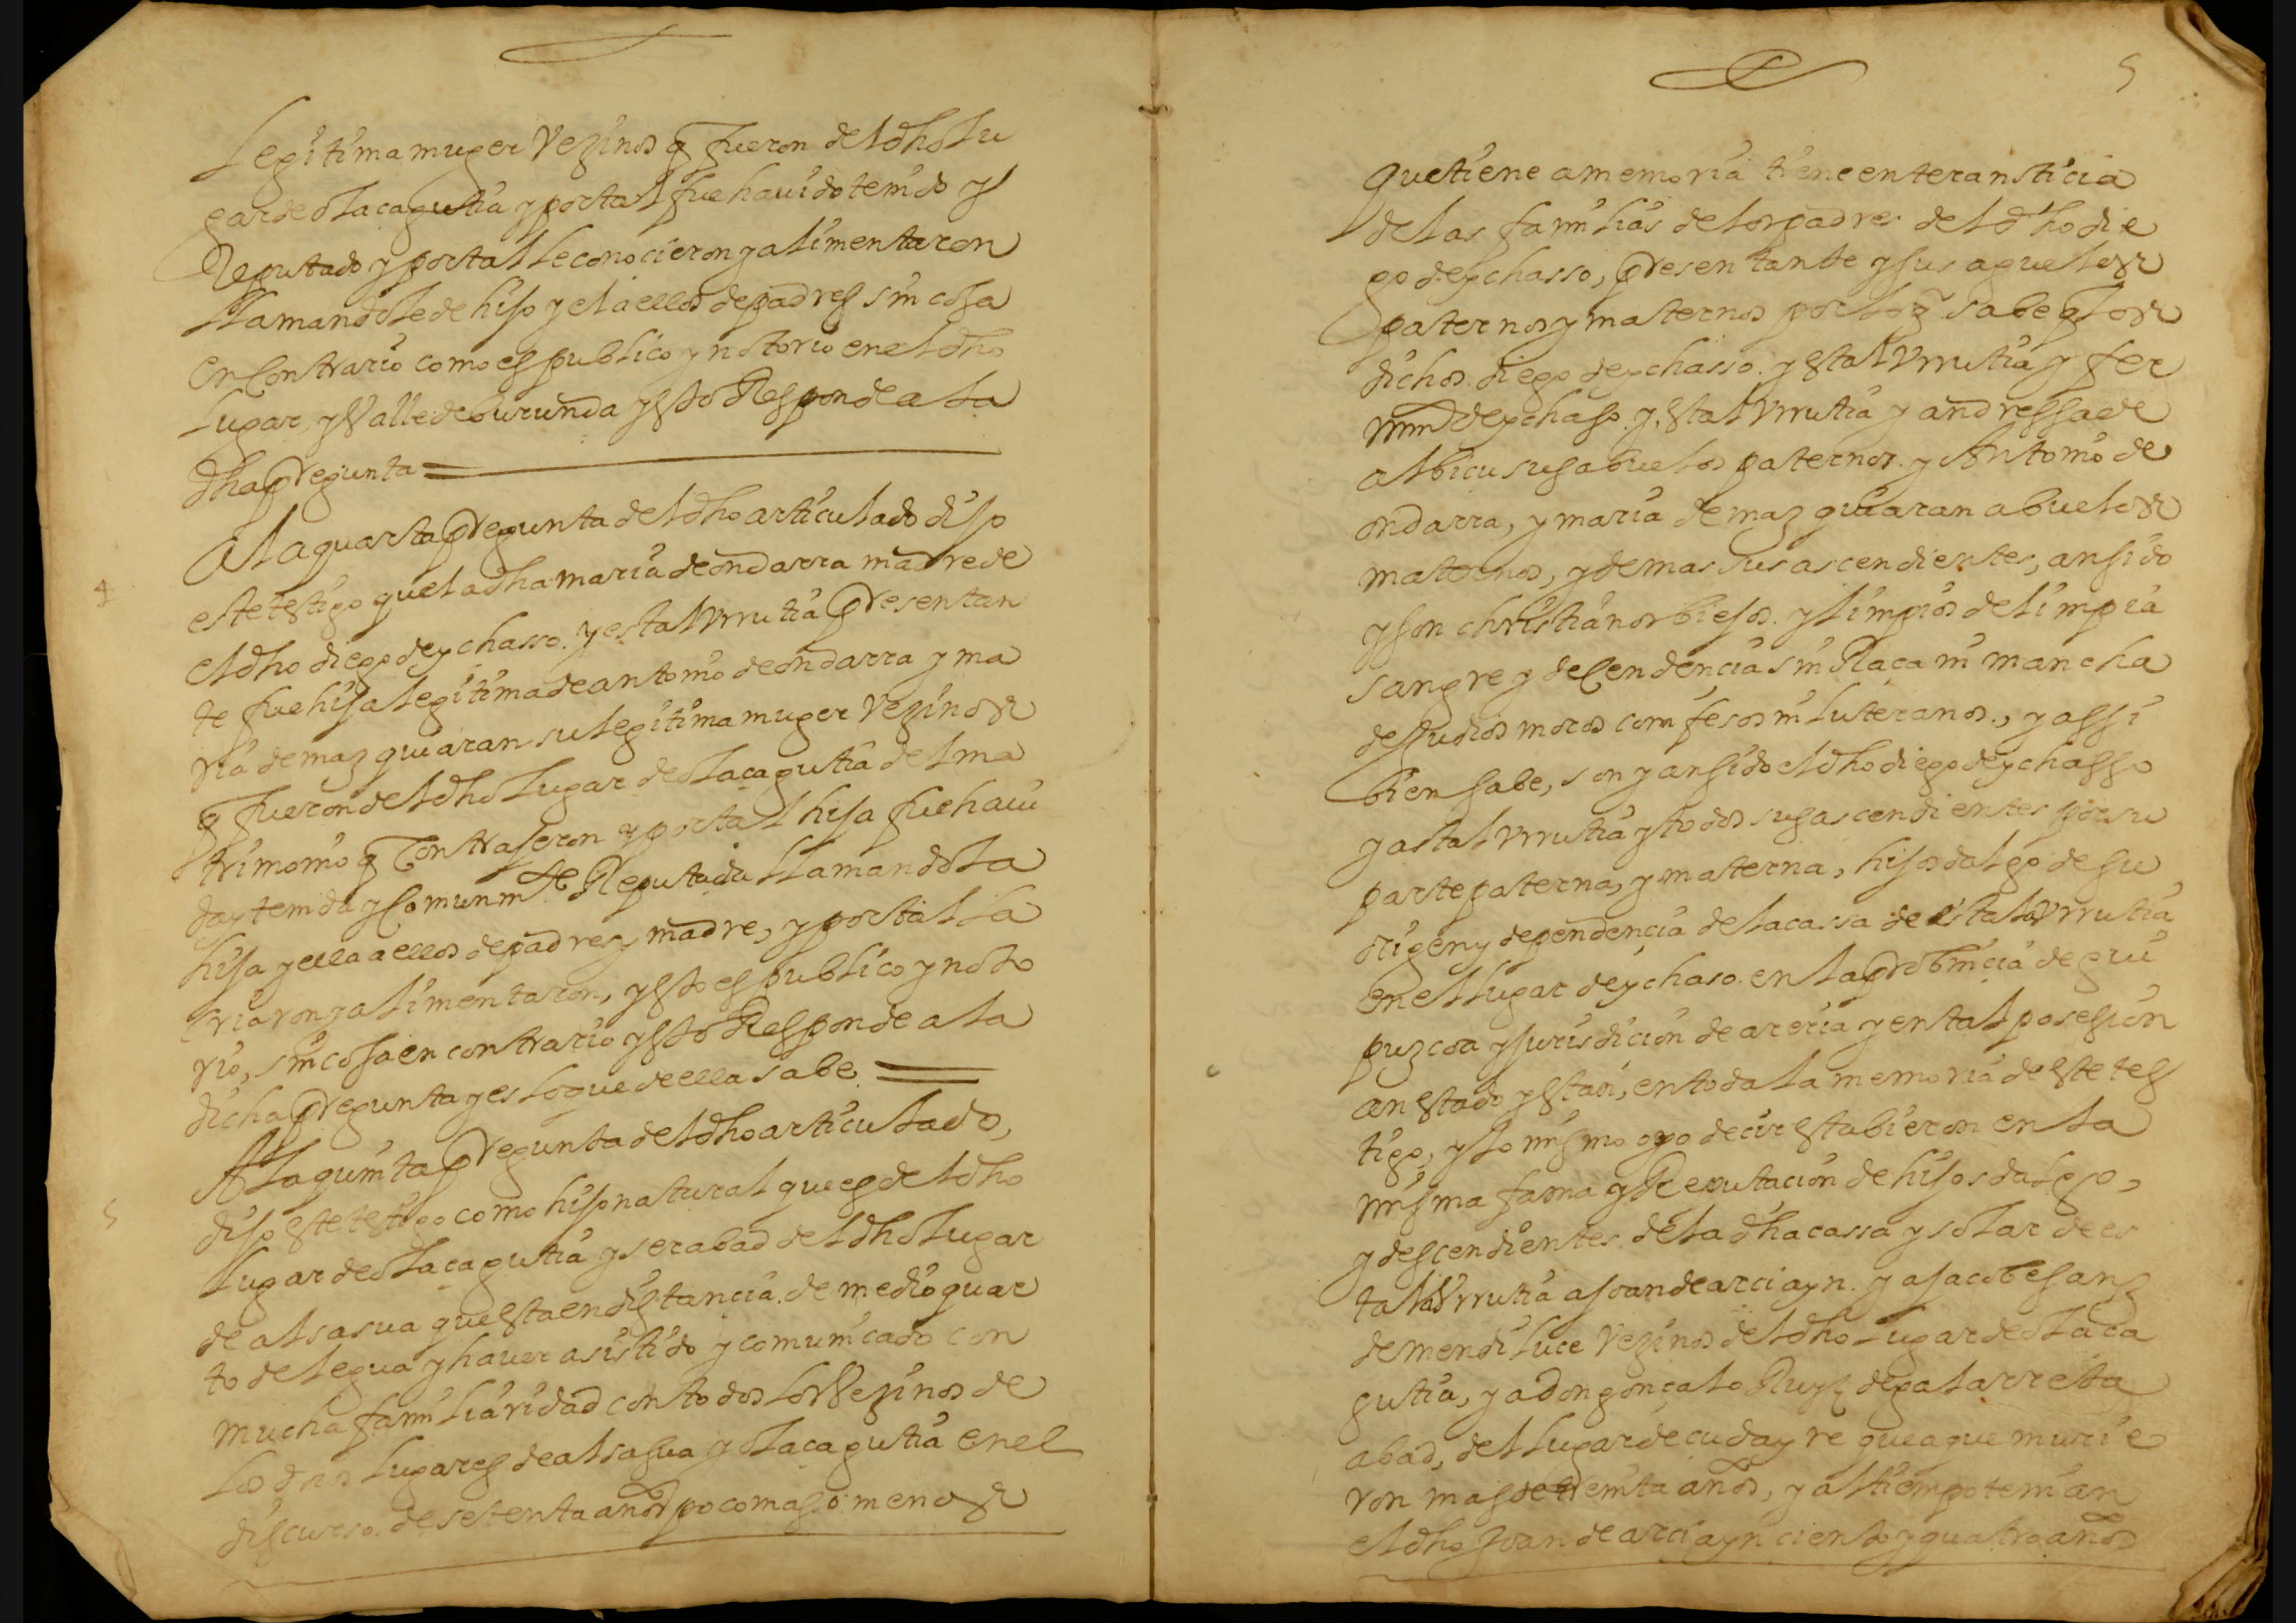 Legitima muger Vezinos q fueron del dho lu
gar de olaçagutia y por tal fue hauido tenido y
Reputado y por tal le conocieron y alimentaron
llamandole de hijo y el a ellos de padres sin cosa
en Contrario como es publico y notorio en el dho
lugar, y Valle de burunda y esto Responde a la
dha pregunta
4
A la quarta pregunta del dho articulado dijo
este testigo que la dha maria de ondarra madre de
el dho diego de ychasso. y estal Vrrutia presentan
te fue hija legitima de antonio de ondarra y ma
ria de mazquiaran su legitima muger Vezinos
q fueron del dho lugar de olaçagutia del ma
trimonio q Contrajeron y por tal hija fue haui
da y tenida y Comunmte Reputada llamandola
hija y ella a ellos de padres, madre, y por tal la
criaron y alimentaron, y esto es publico y noto
rio, sin cosa en contrario y esto Responde a la
dicha pregunta y es lo que de ella sabe
5
A la quinta pregunta del dho articulado,
dijo este testigo como hijo natural que es del dho
lugar de olaçagutia y ser abad del dho lugar
de alsasua que esta en distancia de medio quar
to de legua y hauer asistido y comunicado con
mucha familiaridad con todos los Vezinos de
los dhos lugares de alsasua y olaçagutia en el
discurso de setenta años poco mas o menos
5
que tiene a memoria tiene entera noticia
de las familias de los padres del dho die
go de ychasso, presentante y sus aguelos
paternos y maternos por lo q sabe q los
dichos diego de ychasso. y estal Vrrutia y fer
nnd de ychaso. y, estal Vrrutia y andressa de
albicu sus abuelos paternos. y Antonio de
ondarra, y maria de mazquiaran abuelos
maternos, y demas sus ascendientes, an sido
y son christianos biejos. y limpios de limpia
sangre y deCendencia sin Raça ni mancha
de Judios moros confesos ni luteranos., y assi
bien sabe, son y an sido el dho diego de ychasso
y astal Vrrutia y todos sus ascendientes por su
parte paterna, y materna, hijos dalgo de su
origen y dependencia de la cassa de estala Vrrutia
en el lugar de ychaso. en la probincia de gui
puzcoa y jurisdicion de areria y en tal posesion
an estado y estan, en toda la memoria de este tes
tigo, y lo mismo oyo decir estabieron en la
misma fama y Reputacion de hijos dalgo,
y descendientes de la dha cassa y solar de es
tala Vrrutia a joan de arciayn. y a jacobe sanz
de mendiluce Vezinos del dho lugar de olaça
gutia, y a don gonçalo Ruyz de galarreta
abad, del lugar de cudayre que a que murie
ron mas de treinta años, y al tiempo tenian
el dho Joan de arciayn ciento y quatro años